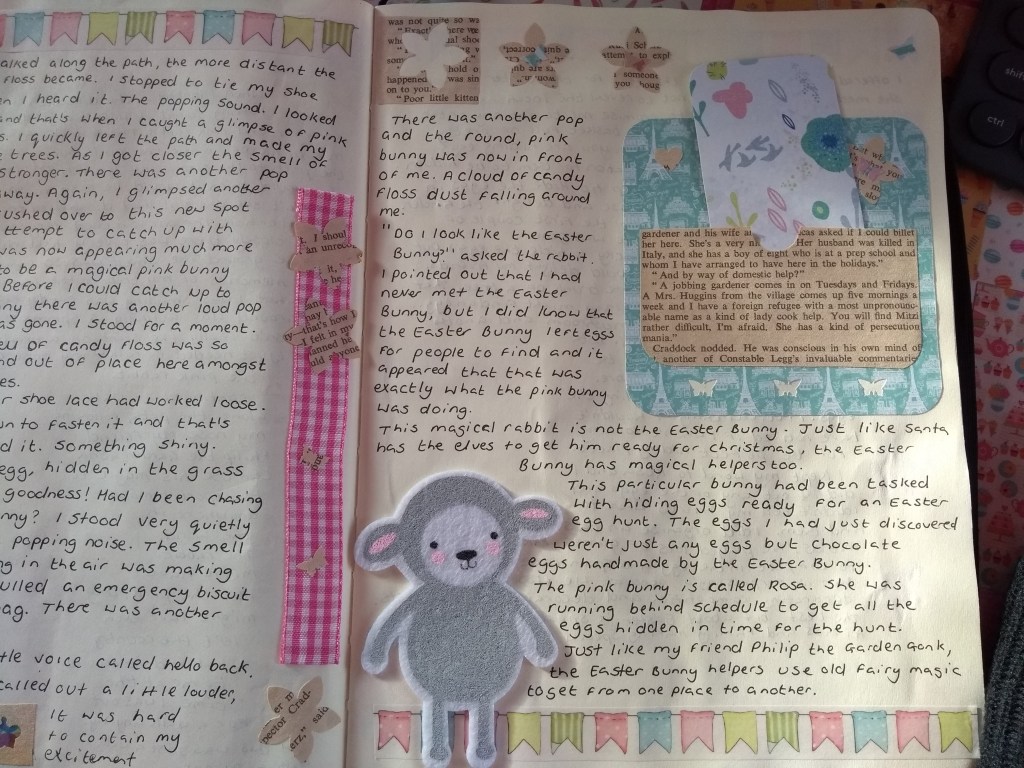 alked along the path, the more distant the
floss became. I stopped to tie my shoe
n I heard it. The popping sound. I looked
and that's when I caught a glimpse of pink
s. I quickly left the path and made my
e trees. As I got closer the smell of
stronger. There was another pop
way. Again, I glimpsed another
ushed over to this new spot
ttempt to catch up with
was now appearing much more
to be a magical pink bunny
Before I could catch up to
ny there was another loud pop
as gone. I stood for a moment.
ell of candy floss was so
nd out of place here amongst
es.
r shoe lace had worked loose.
wn to fasten it and that's
d it. Something shiny.
egg, hidden in the grass
goodness! Had I been chasing
nny? I stood very quietly
popping noise. The smell
ng in the air was making
ulled an emergency biscuit
ag. There was another
tle voice called hello back.
called out a little louder,
It was hard
to contain my
excitement
I shoul
an unreco
it,
he
may
that's how I
I felt in my
lanned he
uld
er m
pector Crad-
erz," said
was not quite so
"Exact
happened
was sin
on to you.
"Poor little kitten
attem to expl
I someone
you
There was another pop
and the round, pink
bunny was now in front
of me. A cloud of candy
floss dust falling around
me.
"Do I look like the Easter
Bunny?" asked the rabbit.
I pointed out that I had
never met the Easter
Bunny, but I did know that
the Easter Bunny left eggs
for people to find and it
appeared that that was
exactly what the pink bunny
was doing.
This magical rabbit is not the Easter Bunny. Just like Santa
has the elves to get him ready for Christmas, the Easter
Bunny has magical helpers too.
This particular bunny had been tasked
with hiding eggs ready for an Easter
egg hunt. The eggs I had just discovered
weren't just any eggs but chocolate
eggs handmade by the Easter Bunny.
The pink bunny is called Rosa. She was
running behind schedule to get all the
eggs hidden in time for the hunt.
Just like my friend Philip the Garden Gonk,
the Easter Bunny helpers use old fairy magic
to get from one place to another.
gardener and his wife a cas asked if I could billet
her here. She's a very ni Her husband was killed in
Italy, and she has a boy of eight who is at a prep school and
whom I have arranged to have here in the holidays."
"And by way of domestic help?"
"A jobbing gardener comes in on Tuesdays and Fridays.
A Mrs. Huggins from the village comes up five mornings a
week and I have a foreign refugee with a most unpronounc-
able name as a kind of lady cook help. You will find Mitzi
rather difficult, I'm afraid. She has a kind of persecution
mania."
Craddock nodded. He was conscious in his own mind of
another of Constable Legg's invaluable commentarie
shift
ctrl